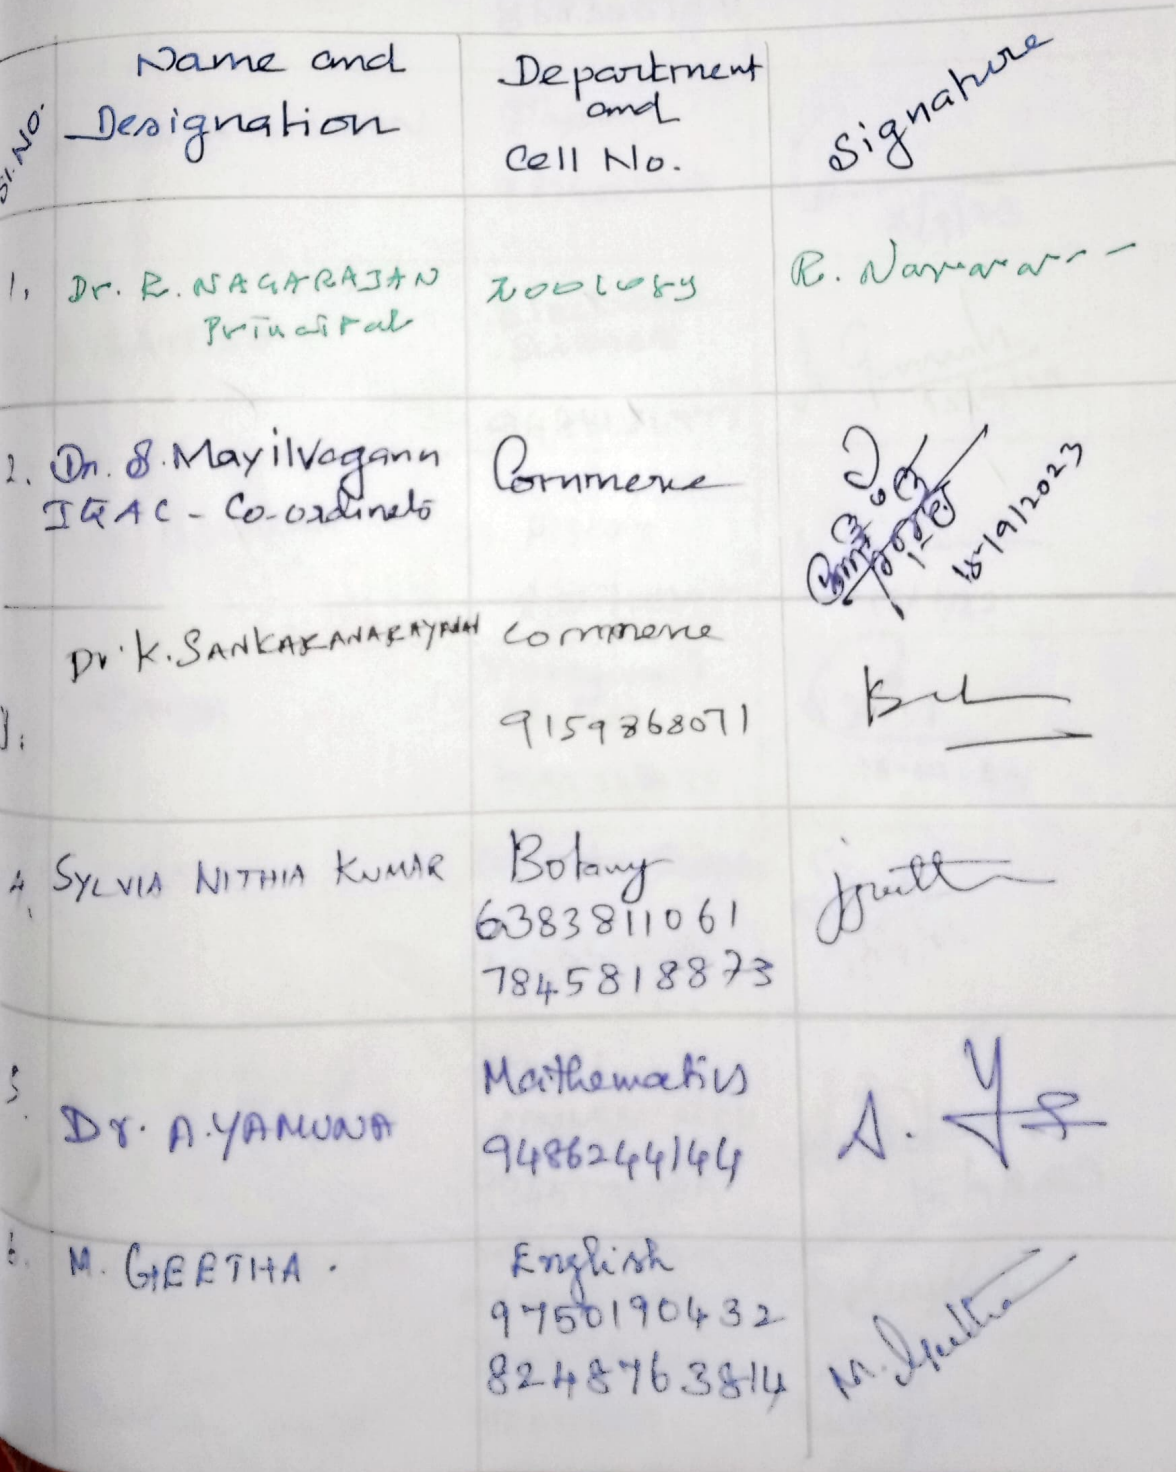 Sl. No.
Name and
Designation
Department
and
Cell No.
Signature
1. Dr. R. NAGARAJAN
Principal
Zoology
R. Nagarajan
2. Dr. S. Mayilvaganan
IQAC - Co-ordinato
Commerce
18/9/2023
3.
Dr. K. SANKARANARAYANAN
Commerce
9159868071
4. SYLVIA NITHIA KUMAR
Botany
6383811061
7845818873
5. Dr. A. YAMUNA
Mathematics
9486244144
A. Y
6. M. GEETHA.
English
9750190432
8248763814
M. Geetha